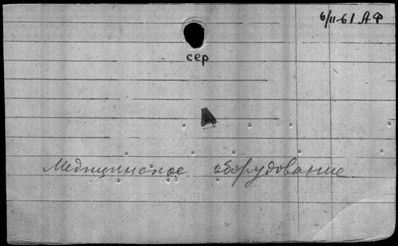 6/II-61 АФ
сер
Медицинское оборудование